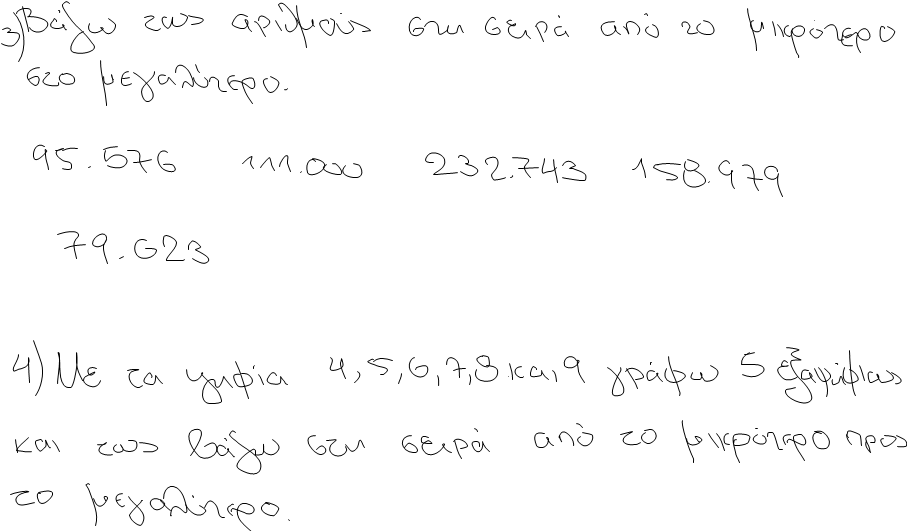 3) Βάζω τους αριθμούς στη σειρά από το μικρότερο
στο μεγαλύτερο.
95.576 111.000 232.743 158.979
79.623
4) Με τα ψηφία 4,5,6,7,8 και 9 γράφω 5 εξαψήφιους
και τους βάζω στη σειρά από το μικρότερο προς
το μεγαλύτερο.